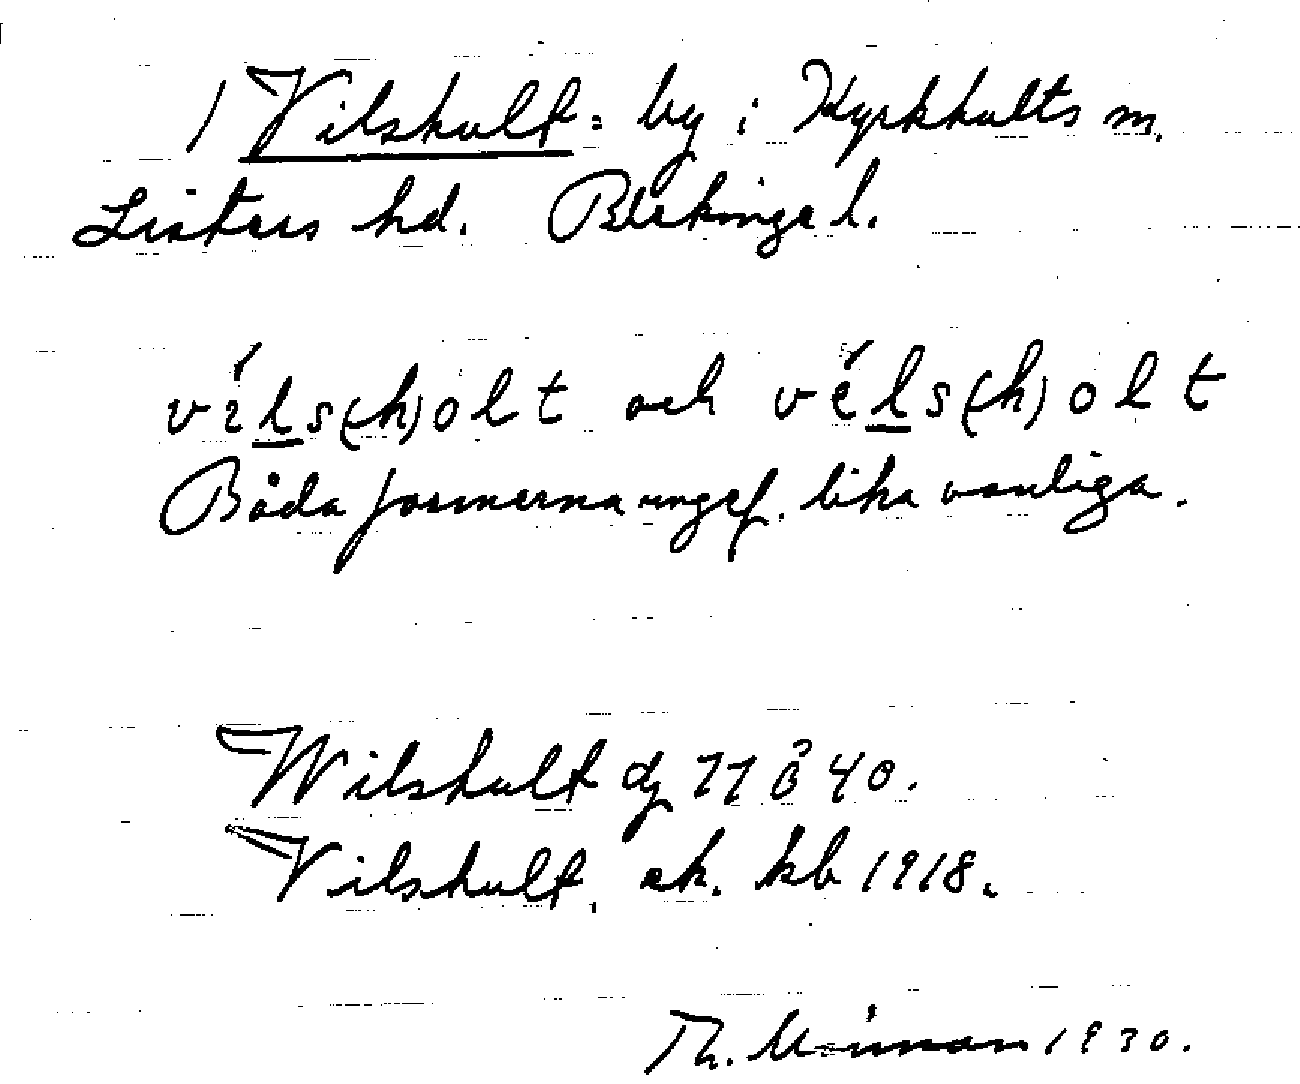 1 Vilshult: by i Kyrkhults sn.
Listers hd. Blekinge l.
víls(h)olt och vé́ls(h)olt
Båda formerna ungef. lika vanliga.
Wilshult dj 77 B 40.
Vilshult, ek. kb 1918.
Th. 1930.